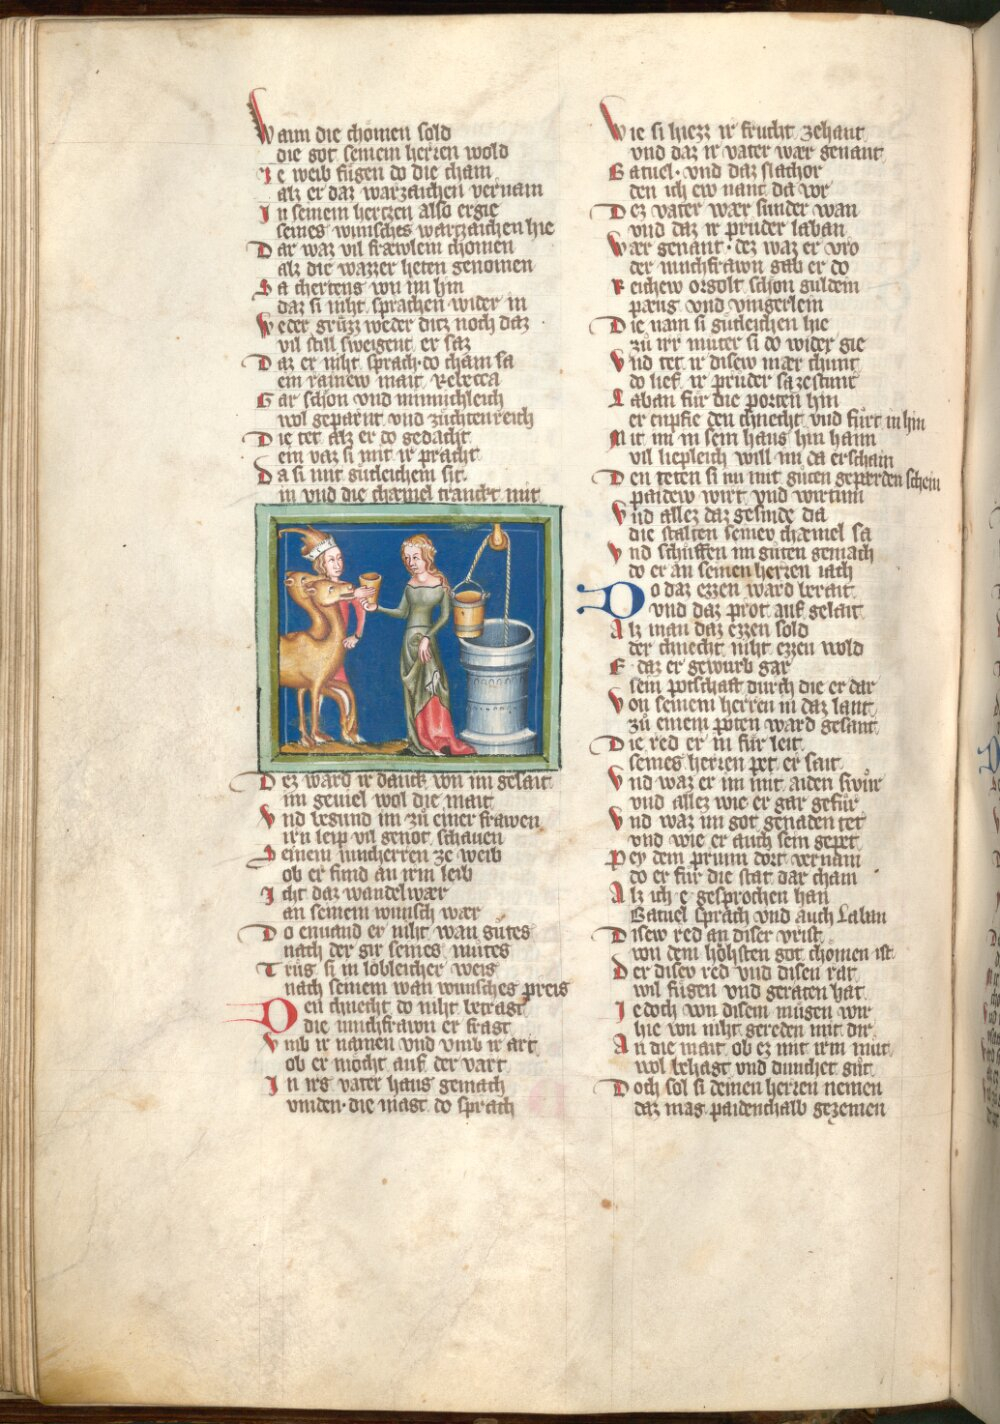 Wann die chömen sold
die got seinem herren wold
Ze weib fügen do die cham
alz er daz warzaichen vernam
In seinem hertzen also ergie
seines wunsches wartzaichen hie
Dar waz vil fræwlein chomen
alz die wazzer heten genomen
Sa chertens von im hin
daz si niht sprachen wider in
Weder grüzz weder ditz noch daz
vil still sweigent er saz
Daz er niht sprach · do cham sa
ein rainew mait Rebecca
Gar schön vnd minnichleich
wol geparnt vnd züchten reich
Die tet alz er do gedacht
ein vaz si mit ir pracht
Da si mit gütleichem sit
in vnd die chæmel tranckt mit
Dez ward ir danck von im gelait
im geuiel wol die mait
Vnd begund im zü einer frawen
irn leip vil genot schauen
Seinem iuncherren ze weib
ob er find an irm leib
Icht daz wandelwær
an seinem wunsch wær
Do enuand er niht wan gütes
nach der gir seines mütes
Trüg si in löbleicher weis
nach seinem wan wunsches preis
Den chnecht do niht betragt
die iunchfrawn er fragt
Vmb ir namen vnd vmb ir art
ob er möcht auf der vart
In irs vater haus gemach
vinden · die magt do sprach
Wie si hiezz ir frucht zehant
vnd daz ir vater wær genant
Batuel · vnd daz Nachor
den ich ew nant da vor
Dez vater wær sunder wan
vnd daz ir prüder laban
Wær genant · dez waz er vro
der iunchfrawn gab er do
Reichew orgolt schön guldein
pæug vnd vingerlein
Die nam si gütleichen hie
zü irr müter si do wider gie
Vnd tet ir disew mær chunt
do lief ir prüder sa zestunt
Laban für die porten hin
er enpfie den chnecht vnd fürt in hin
Mit im in sein haus hin haim
vil liepleich will im da erschain
Den teten si im mit güten geperden schein
paidew wirt vnd wirtinn
Vnd allez daz gesinde da
die stalten seinev chæmel sa
Vnd schüffen im güten gemach
do er an seinen herren iach
Do daz ezzen ward berait
vnd daz prot auf gelait
Alz man daz ezzen sold
der chnecht niht ezzen wold
E daz er gewurb gar
sein potschaft durch die er dar
Von seinem herren in daz lant
zü einem poten ward gesant
Die red er in für leit
seines herren pet er sait
Vnd waz er im mit aiden swür
vnd allez wie er gar gefür
Vnd waz im got genaden tet
vnd wie er auch sein gepet
Pey dem prunn dort vernam
do er für die stat dar cham
Alz ich e gesprochen han
Batuel sprach vnd auch Laban
Disew red an diser vrist
von dem höhsten got chomen ist
Der disev red vnd disen rat
wil fügen vnd geraten hat
Iedoch von disem mügen wir
hie von niht gereden mit dir
An die mait ob ez mit irm müt
wol behagt vnd dunchet güt
Doch sol si deinen herren nemen
daz mag paidenthalb gezemen